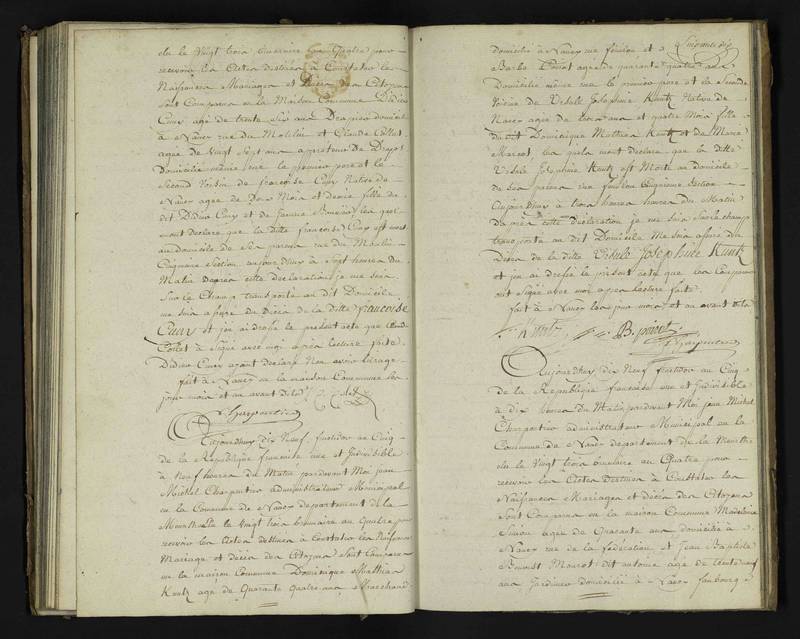 élu le vingt trois brumaire an quatre pour
recevoir les actes destinés à Constater les
Naissances Mariages et Décès des Citoyens
sont Comparus en la Maison Commune Didier
Cuny agé de trente six ans Drapier domicilié
à Nancy rue du Moulin et Claude Collet
agée de vingt Sept ans apreteur de Draps
Domicilié même rue le premier pere et le
Second Voisin de françoise Cuny Native de
Nancy agée de Deux Mois et demie fille du
dit Didier Cuny et de Jeanne les quels
mont declaré que la ditte françoise Cuny est morte
au domicile de ses parens rue du Moulin
Cinquieme Section aujourdhuy à Sept heures du
Matin Dapres cette déclaration je me suis
Sur le Champ transporté au dit Domicile
me suis assuré du Décès de la ditte françoise
Cuny et jai ai dressé le présent acte que Claude
Collet à Signé avec moi après lecture faite
Didier Cuny ayant declaré Non avoir lusage
fait à Nancy en la maison Commune les
jour mois et an avant dits C. Collet
Charpentier
Aujourdhuy dix Neuf fructidor an Cinq
de la Republique francaise une et Indivisible
à Neuf heures du Matin pardevant Moi jean
Michel Charpentier administrateur Municipal
en la Commune de Nancy Departement de la
Meurthe élu le vingt trois brumaire an Quatre pour
recevoir les actes destinés à Constater les Naissances
Mariage et décès des Citoyens Sont Comparus
en la maison Commune Dominique Mathieu
Kuntz agé de Quarante Quatre ans Marchand
domicilié à Nancy rue foulon et
Barbe agée de quarante quatre ans
Domiciliée même rue le premier pere et la Seconde
Voisine de Ursule Josephine Kuntz Native de
Nancy agée de trois ans et quatre Mois fille
du dit Dominique Mathieu Kuntz et de Marie
Marcot les quels mont declaré que la ditte
Ursule Josephine Kuntz est Morte au domicile
de ses parens rue foulon Cinquieme Section
aujourdhuy à trois heures du Matin
Dapres cette déclaration je me suis Sur le champ
transporté au dit Domicile Me suis assuré du
Décès de la ditte Ursule Josephine Kuntz
et jen ai dressé le présent acte que les Comparus
ont Signé avec moi apres lecture faite
fait à Nancy les jour mois et an avant dits
Kuntz B.
Charpentier
Aujourdhuy dix Neuf fructidor an Cinq
de la Republique francaise une et Indivisible
à dix heures du Matin pardevant Moi jean Michel
Charpentier administrateur Municipal en la
Commune de Nancy departement de la Meurthe
élu le vingt trois brumaire an Quatre pour
recevoir les Actes Destinés à Constater les
Naissances Mariages et décès des Citoyens
Sont Comparus en la maison Commune Madeleine
Simon agée de Quarante ans domiciliée à
Nancy rue de la fédération et Jean Baptiste
dit antoine agé de
ans Jardinier domicilié à Nancy faubourg